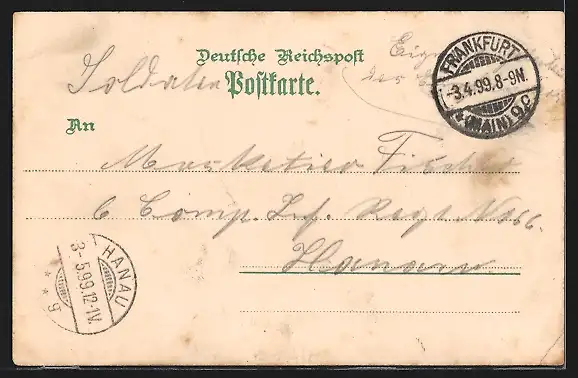 Deutsche Reichspost
Postkarte.
Soldaten
Eig
des
An
Musketier Fischer
6 Comp. Inf. Regt. No 166.
Hanau
FRANKFURT
-3.4.99.8-9N.
* (MAIN) 9.
HANAU
3-5.99.12-1V.
* * g